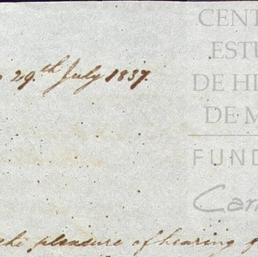 CENT
ESTU
DE HI
DE M
FUND
Car
29th July 1837.
the pleasure of hearing